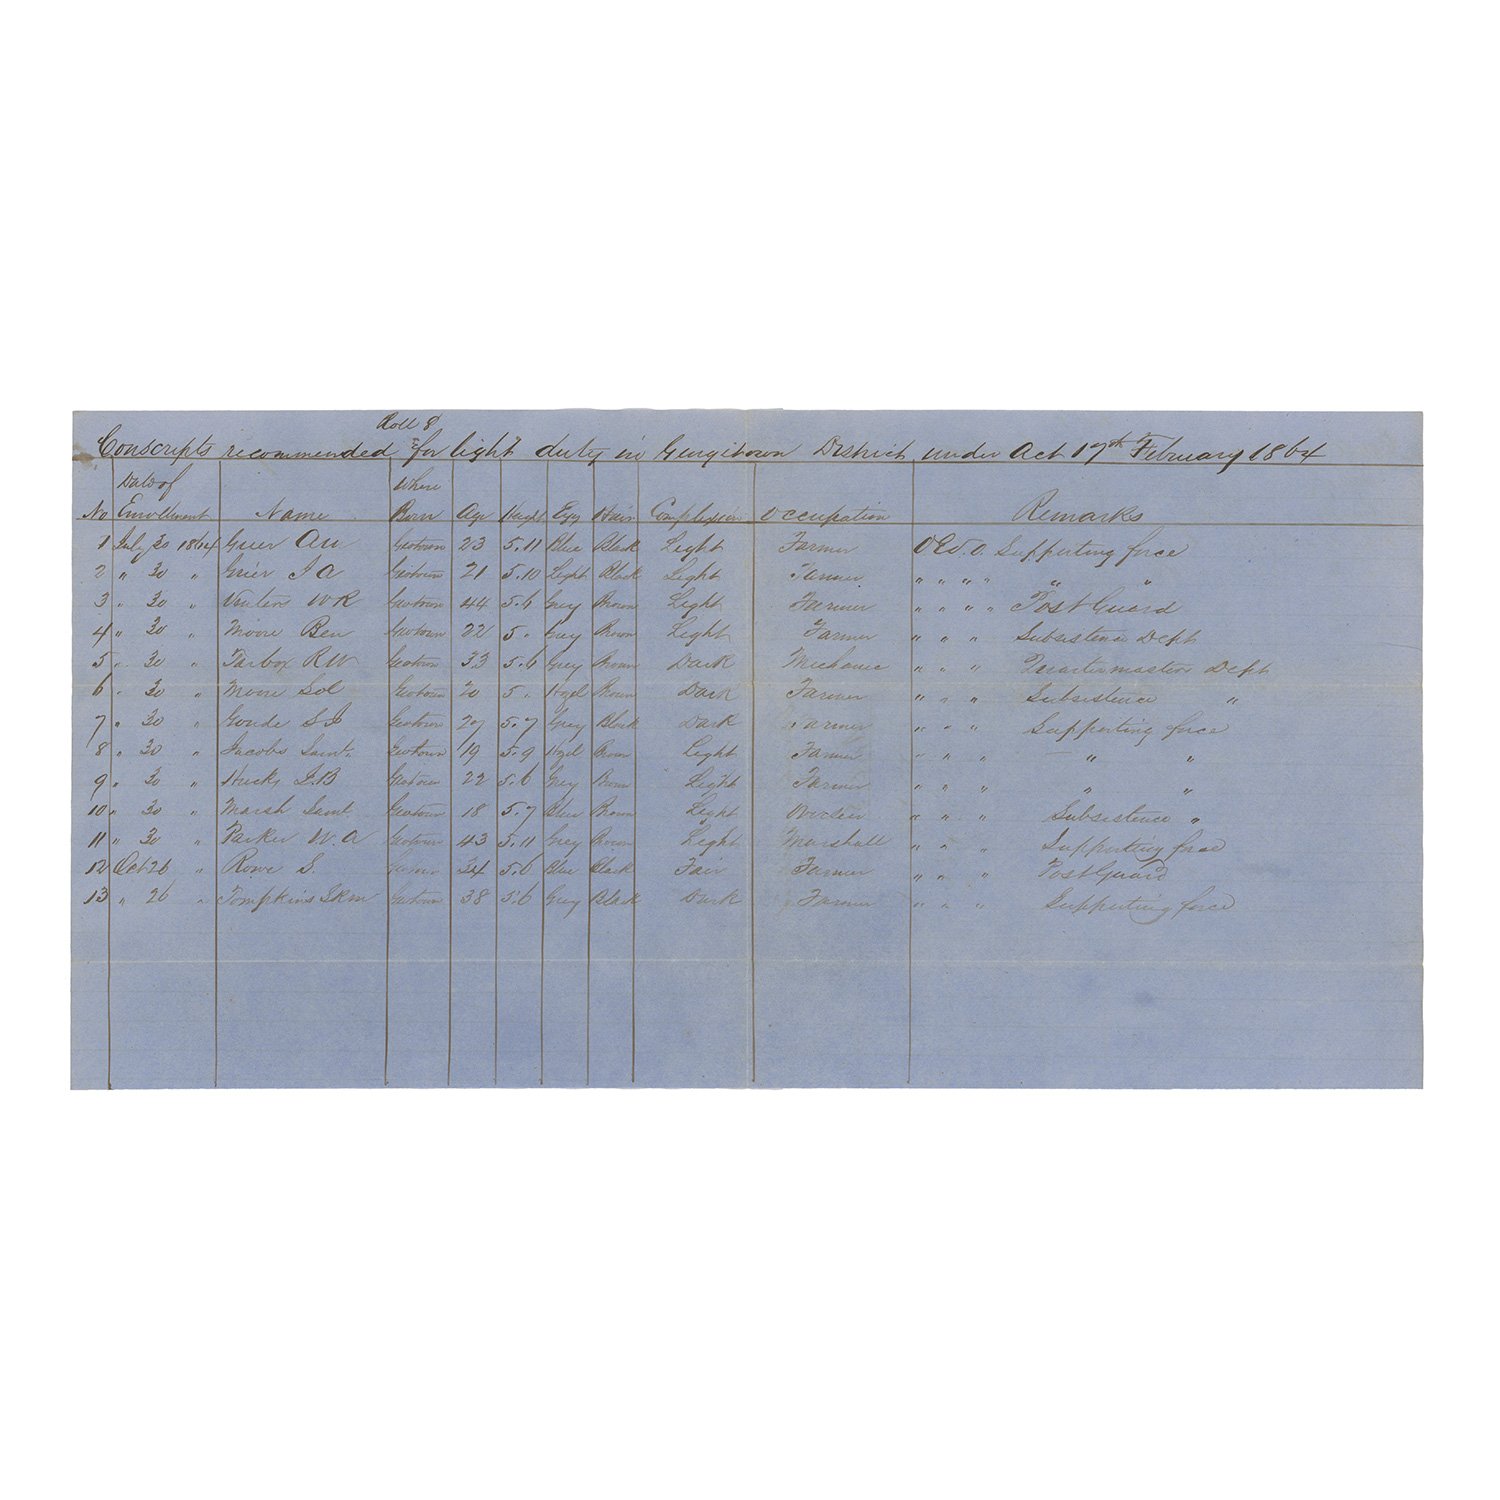 Roll 8
Conscripts recommended for light duty in Georgetown District under Act 17th February 1864
No Date of Enrollment Name Where Born Age Height Eyes Hair Complexion Occupation Remarks
1 July 30 1864 Grier Geotown 23 5.11 Blue Black Light Farmer Supporting force
2 " 30 " Grier J A Geotown 21 5.10 Light Black Light Farmer " " " " " "
3 " 30 " W R Geotown 44 5.6 Grey Brown Light Farmer " " " " Post Guard
4 " 30 " Moore Ben Geotown 22 5 " Grey Brown Light Farmer " " " Subsistence Dept
5 " 30 " Tarbox R W Geotown 33 5.6 Grey Brown Dark Mechanic " " " Quartermasters Dept
6 " 30 " Moore Sol Geotown 20 5 " Hazel Brown Dark Farmer " " " Subsistence "
7 " 30 " Goude S J Geotown 27 5.7 Grey Black Dark Farmer " " " Supporting force
8 " 30 " Jacobs Saml Geotown 19 5.9 Hazel Brown Light Farmer " " " " "
9 " 30 " Hucks Geotown 22 5.6 Grey Brown Light Farmer " " " " "
10 " 30 " Marsh Saml Geotown 18 5.7 Blue Brown Light " " " Subsistence "
11 " 30 " Parker W. A Geotown 43 5.11 Grey Brown Light Marshall " " " Supporting force
12 Oct 26 " Rowe S. Geotown 34 5.6 Blue Black Fair Farmer " " " Post Guard
13 " 26 " Tompkins Geotown 38 5.6 Grey Black Dark Farmer " " " Supporting force